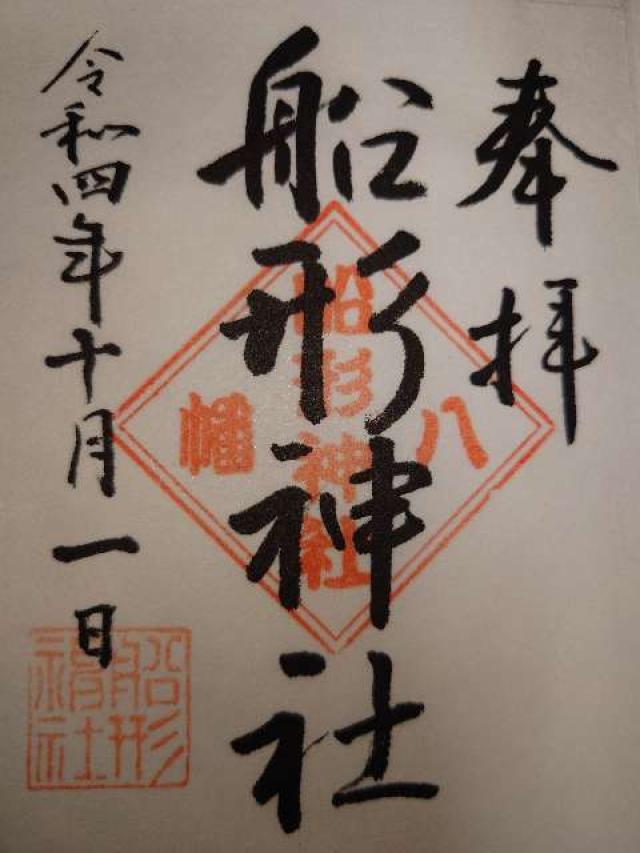 奉拝
船形神社
令和四年十月一日
八幡
船形神社
船形神社